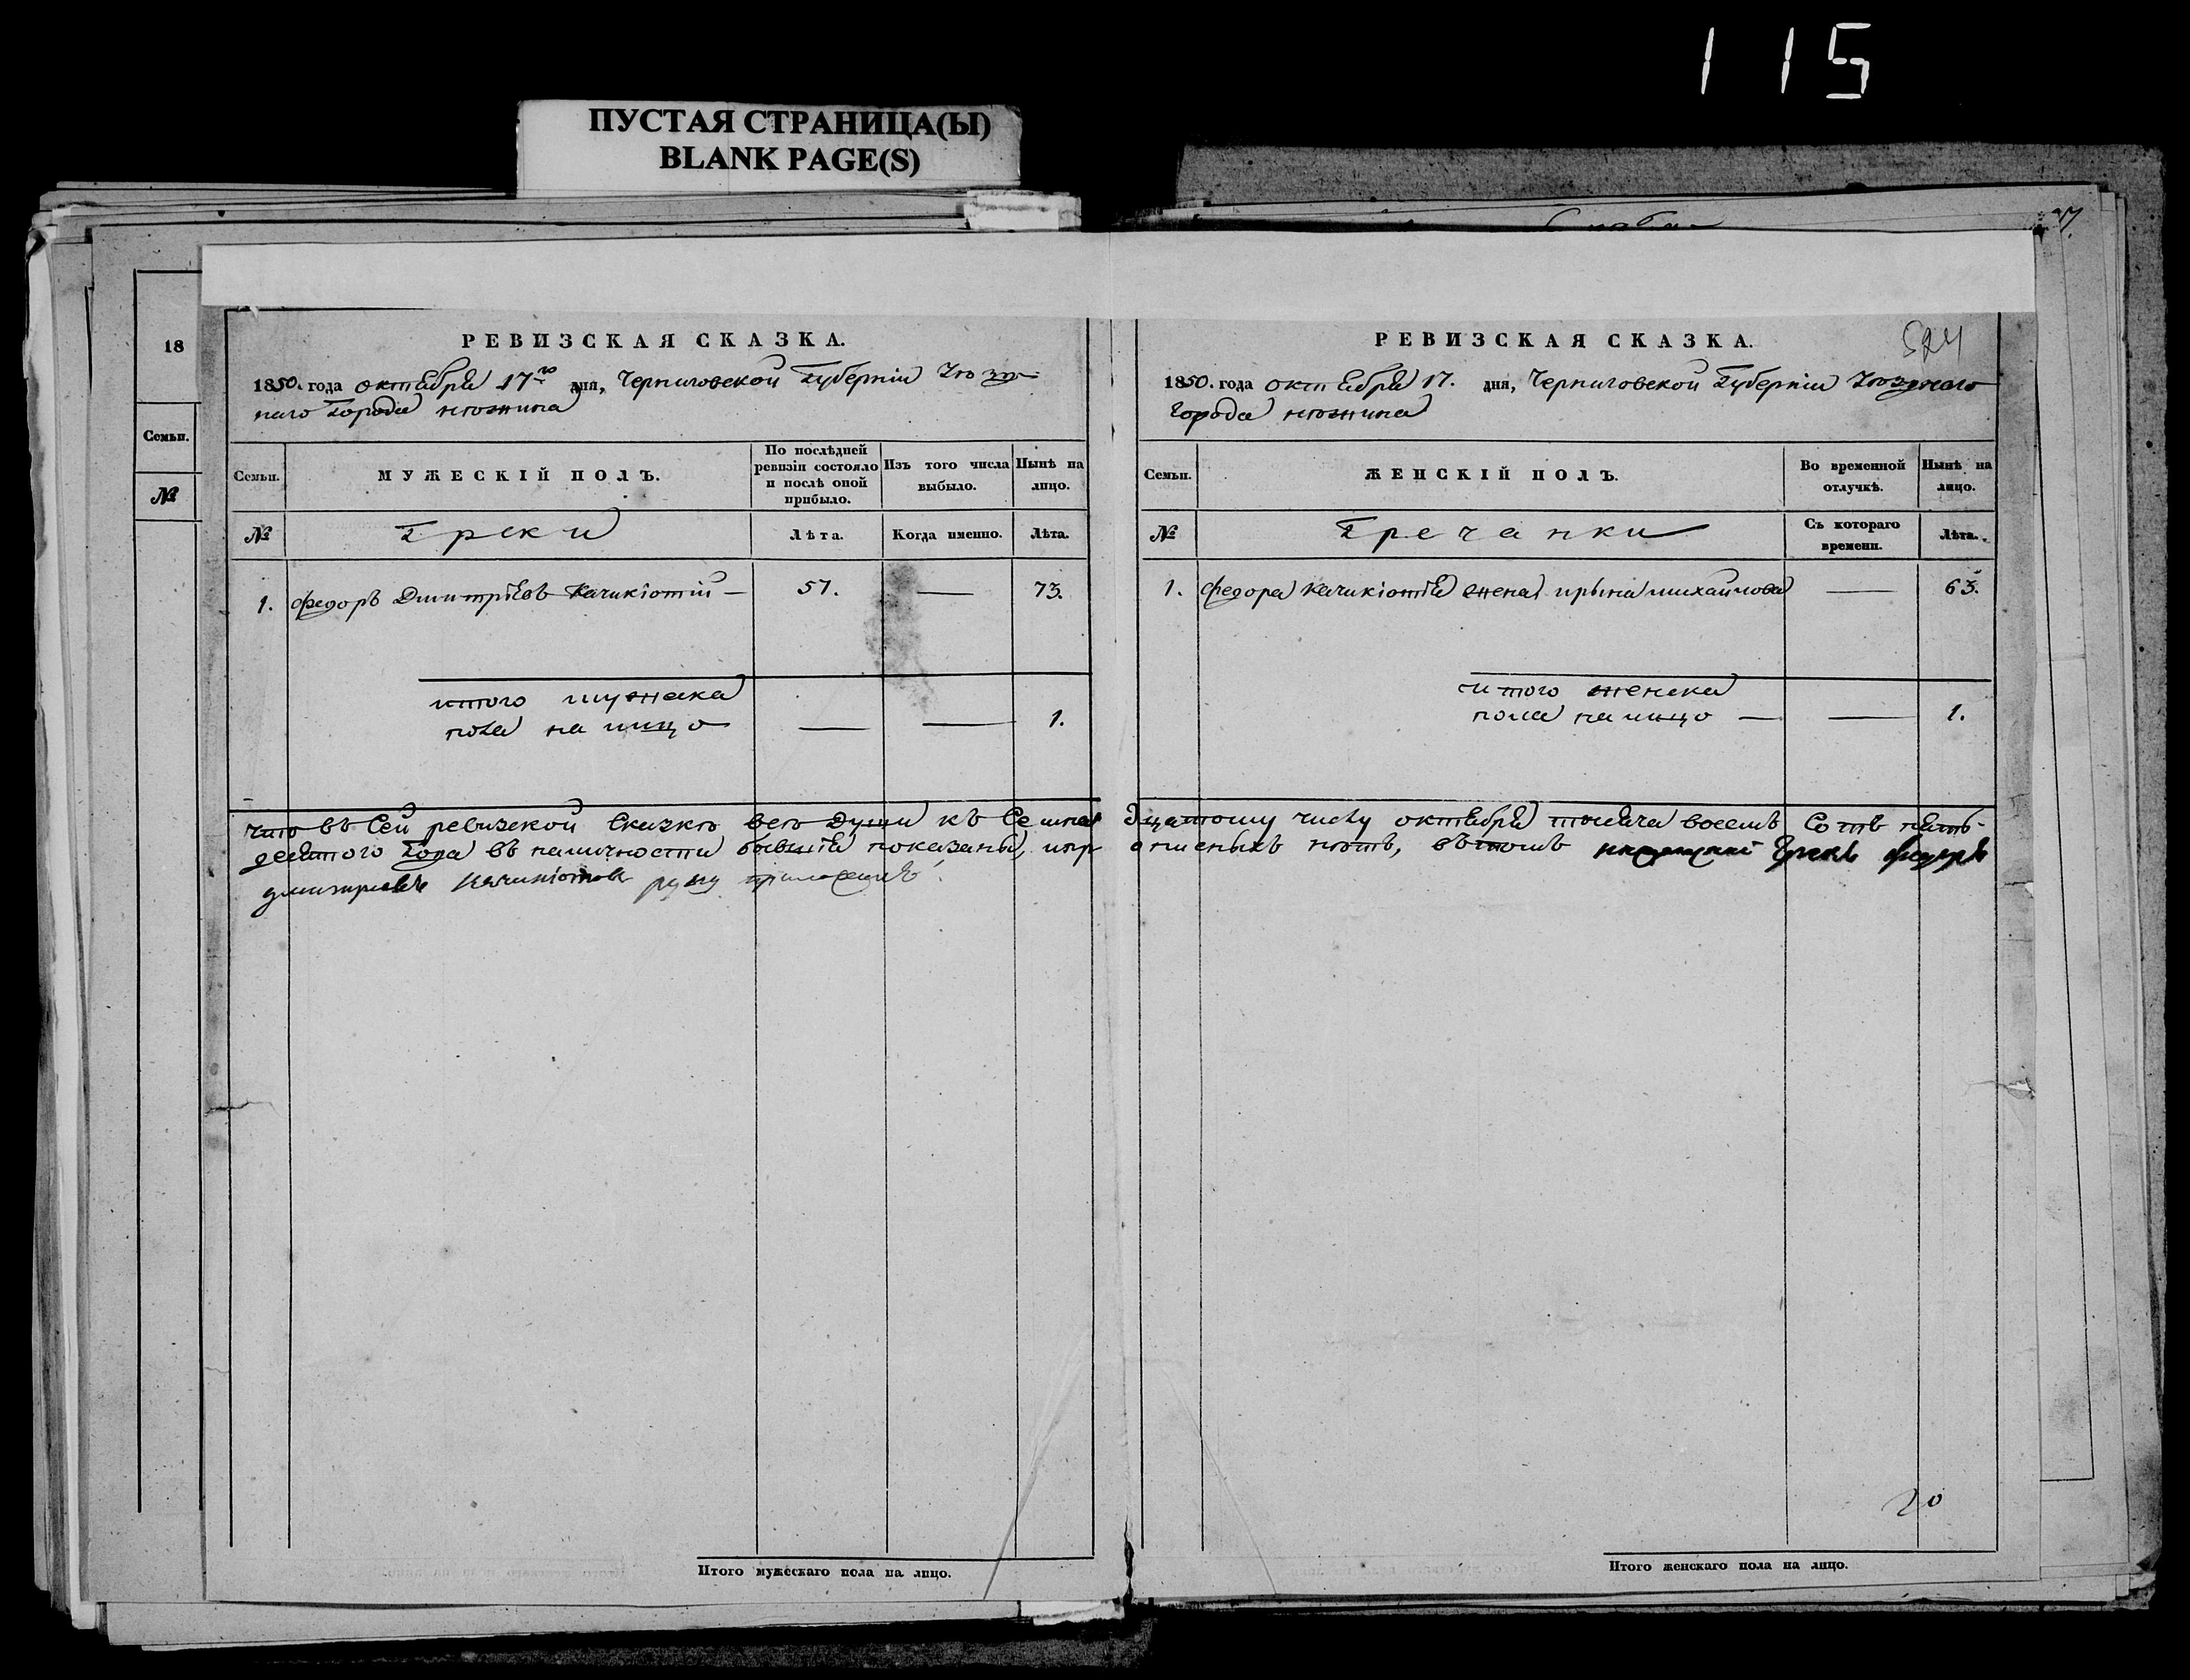 115
ПУСТАЯ СТРАНИЦА(Ы)
BLANK PAGE(S)
18
Семьи.
№
РЕВИЗСКАЯ СКАЗКА.
1850. года октября 17го дня, Черниговской Губерніи Уѣзд-
наго Города нѣжина
Семьи.
МУЖЕСКІЙ ПОЛЪ.
По послѣдней ревизіи состояло и послѣ оной прибыло.
Изъ того числа выбыло.
Нынѣ на лицо.
№
Греки
Лѣта.
Когда именно.
Лѣта.
1. Федоръ Дмитріевъ Качикіотій — 51. — 73.
итого мужска
пола на лицо — — 1.
РЕВИЗСКАЯ СКАЗКА.
524
1850. года октября 17. дня, Черниговской Губерніи Уѣзднаго
города нѣжина
Семьи.
ЖЕНСКІЙ ПОЛЪ.
Во временной отлучкѣ.
Нынѣ на лицо.
№
Гречанки
Съ котораго времени.
Лѣта.
1. Федора Качикіотія жена ирына михайлова — 63.
итого женска
пола на лицо — — 1.
что въ Сей ревизской Сказкѣ всѣ Души къ Семнадцатому числу октября тысяча восемъ Сотъ пять-
десятого Года въ наличности бывшія показаны, и прописныхъ нѣтъ, вътомъ нѣжинскій Грекъ федоръ
дмитріевъ Качикіотов руку приложилъ
20
Итого мужескаго пола на лицо.
Итого женскаго пола на лицо.